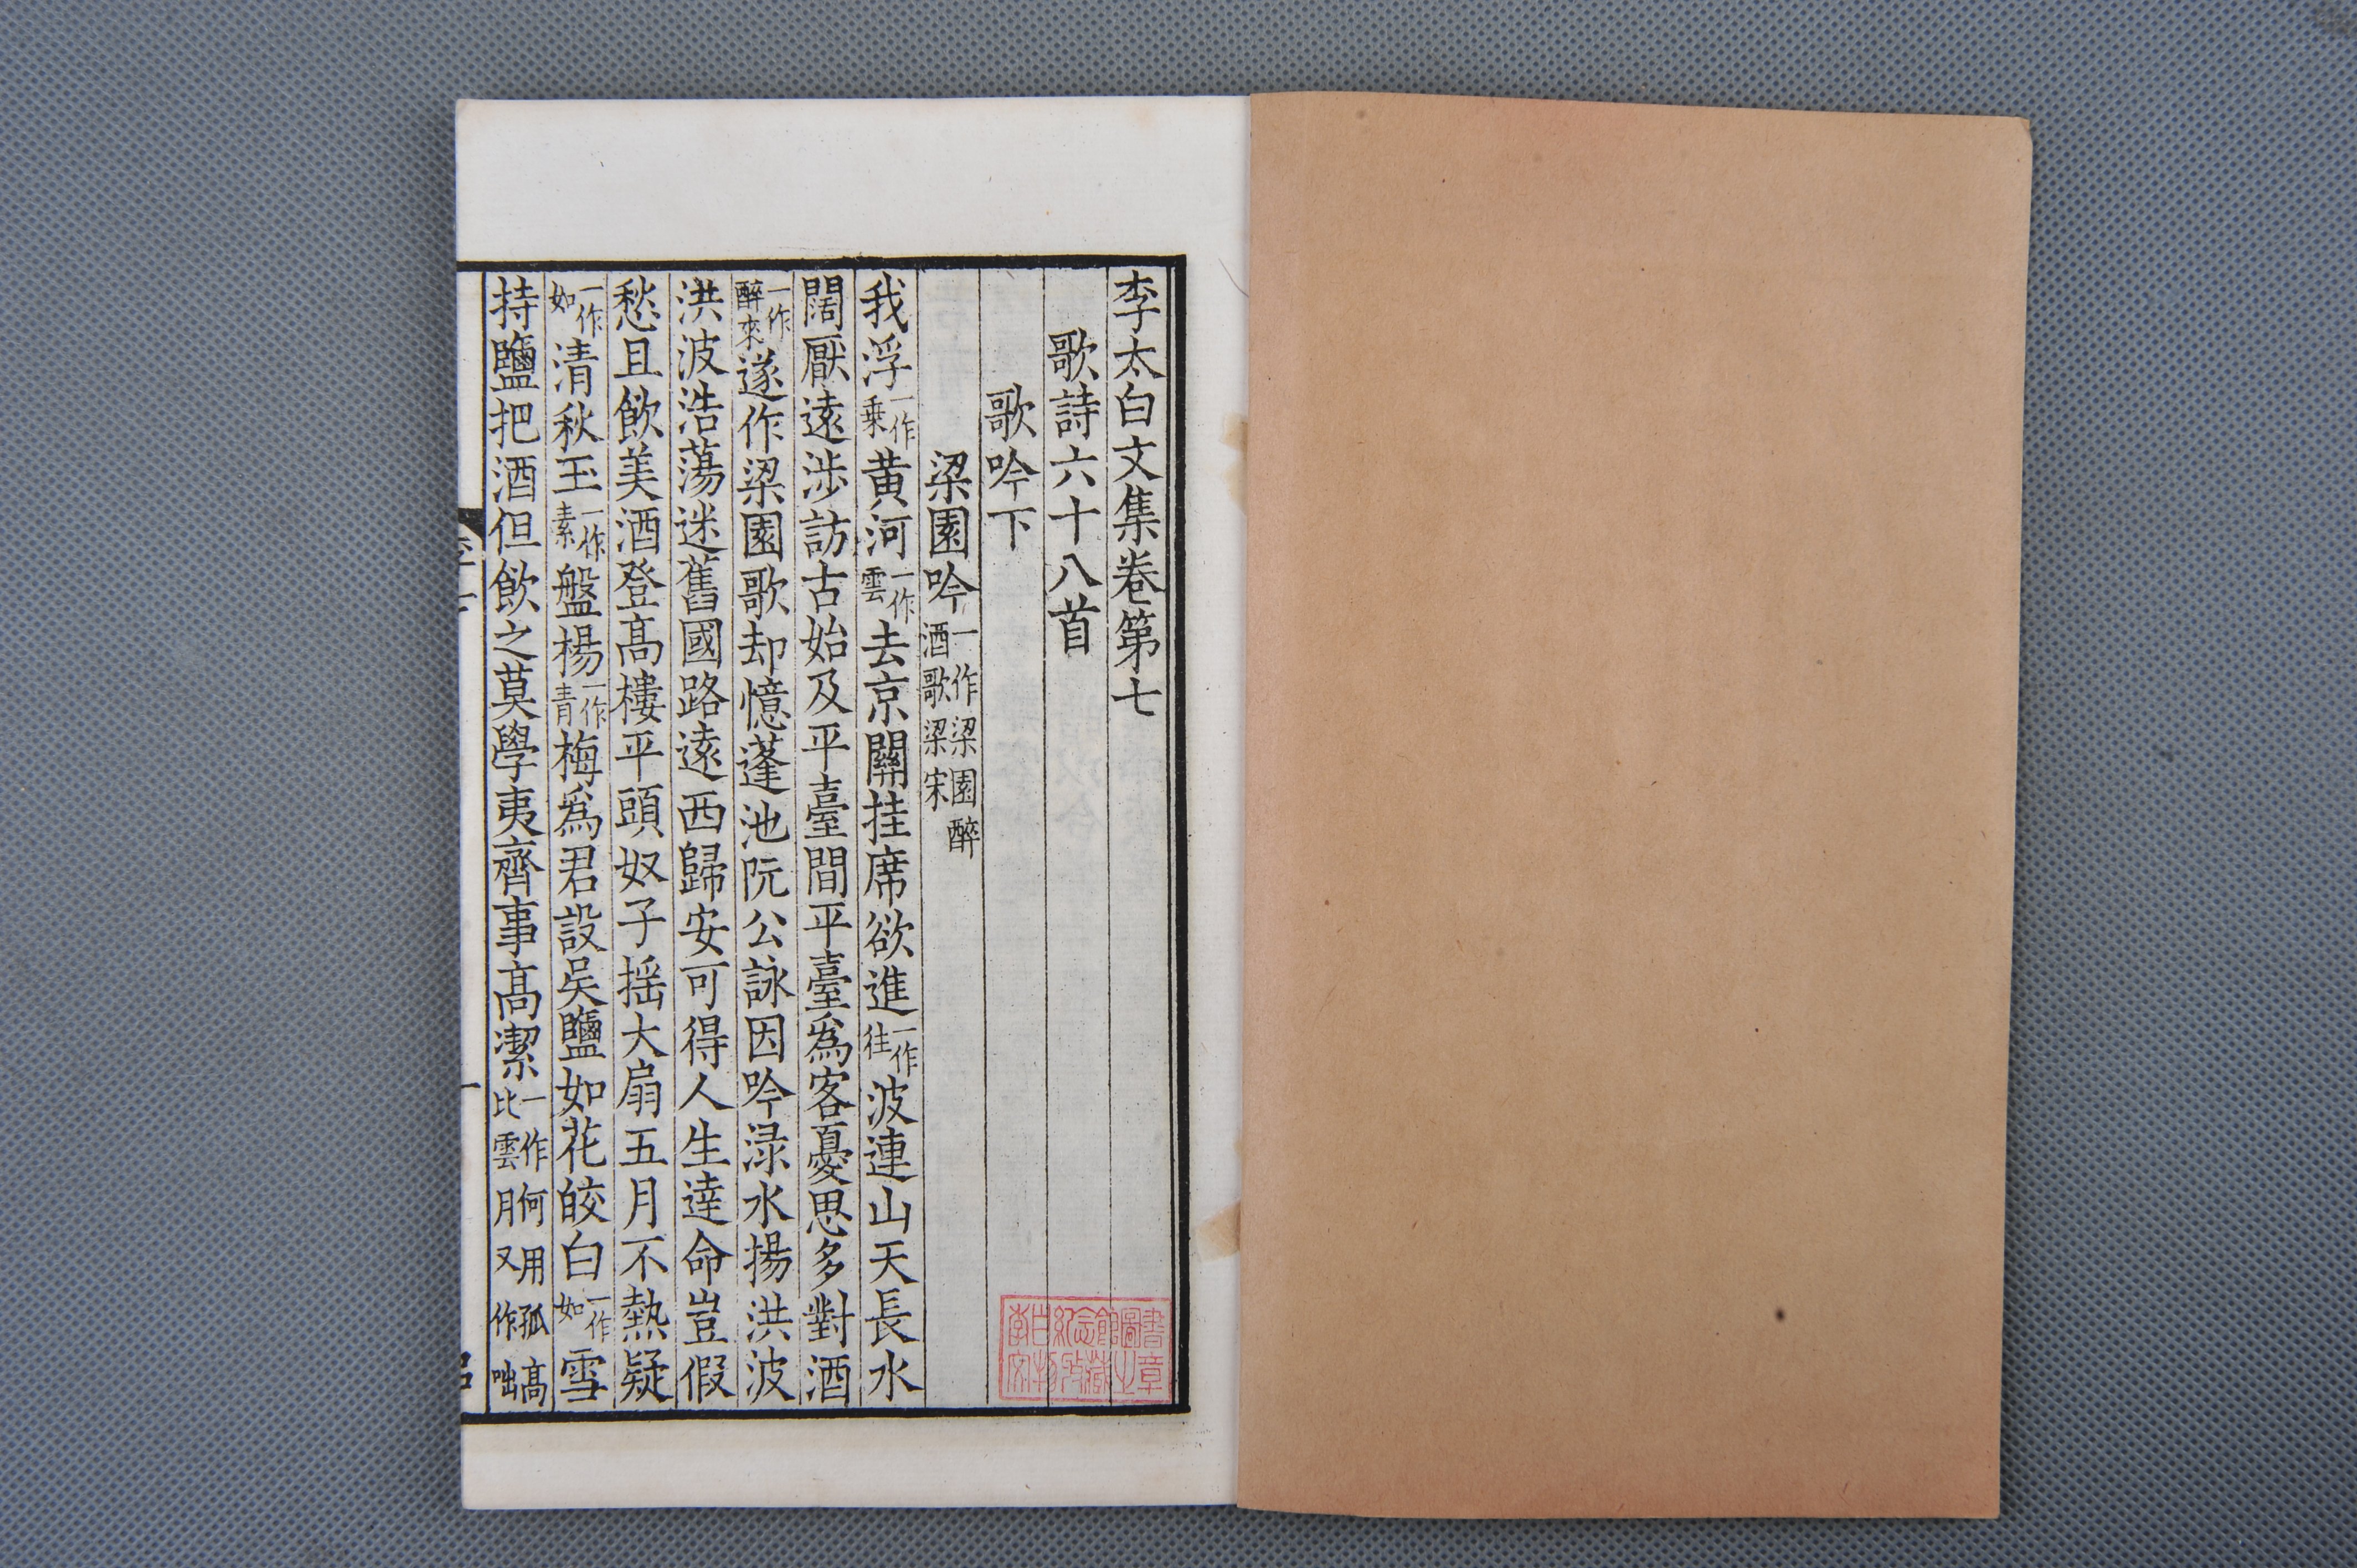 李太白文集卷第七
歌詩六十八首
歌吟下
梁園吟一作梁園醉酒歌梁宋
我浮一作乗黄河一作雲去京關挂席欲進一作往波連山天長水
闊厭遠涉訪古始及平臺間平臺為客憂思多對酒
一作醉來遂作梁園歌却憶蓬池阮公詠因吟渌水揚洪波
洪波浩蕩迷舊國路遠西歸安可得人生達命豈假
愁且飲美酒登髙樓平頭奴子揺大扇五月不熱疑
一作如清秋玉一作素盤楊一作青梅為君設吴鹽如花皎白一作如雪
持鹽把酒但飲之莫學夷齊事髙潔一作何用孤髙比雲月又作咄
一
李白紀念館圖書
文物收藏之章